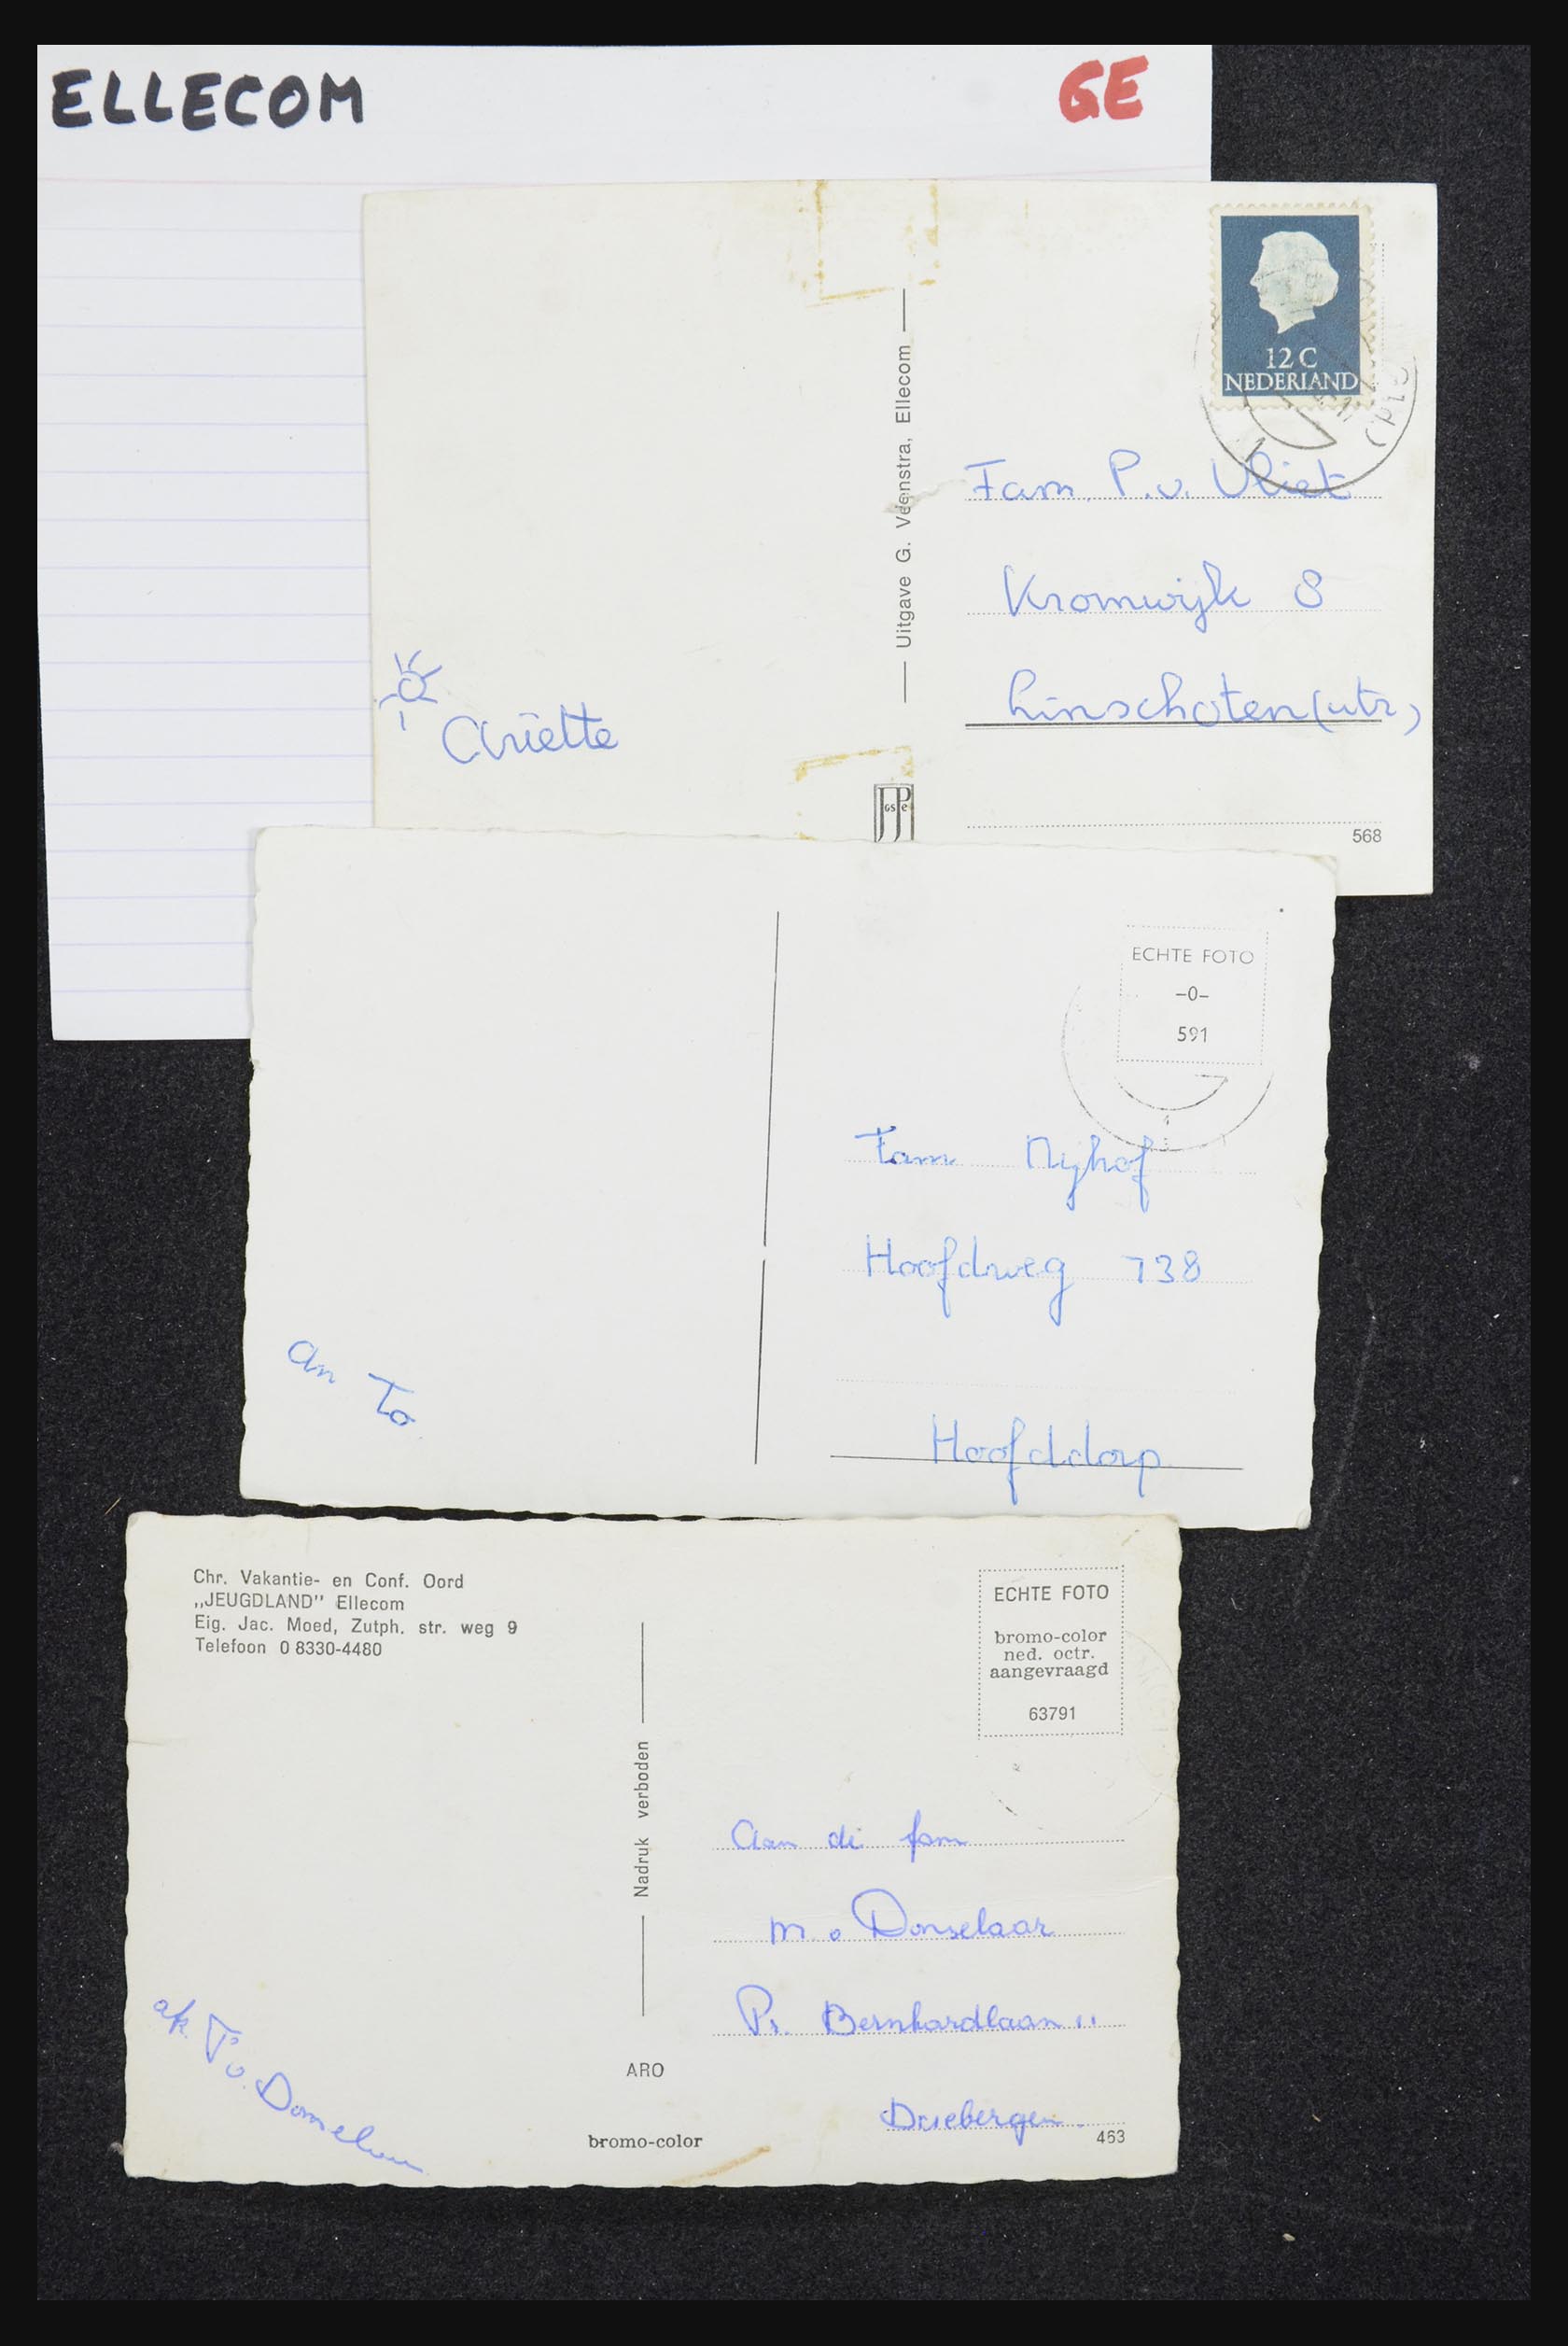 ELLECOM GE
12 C
NEDERLAND
Uitgave G. Veenstra, Ellecom
Fam. P. v. Vliet
Kromwijk 8
Linschoten (utr)
Ariëtte
568
ECHTE FOTO
-0-
591
Fam Nijhof
Hoofdweg 738
Hoofddorp
an To
Chr. Vakantie- en Conf. Oord
„JEUGDLAND” Ellecom
Eig. Jac. Moed, Zutph. str. weg 9
Telefoon 0 8330-4480
ECHTE FOTO
bromo-color
ned. octr.
aangevraagd
63791
Nadruk verboden
Aan de fam
m v Donselaar
Pr. Bernhardlaan 11
Driebergen.
T v. Donselaar
ARO
bromo-color
463